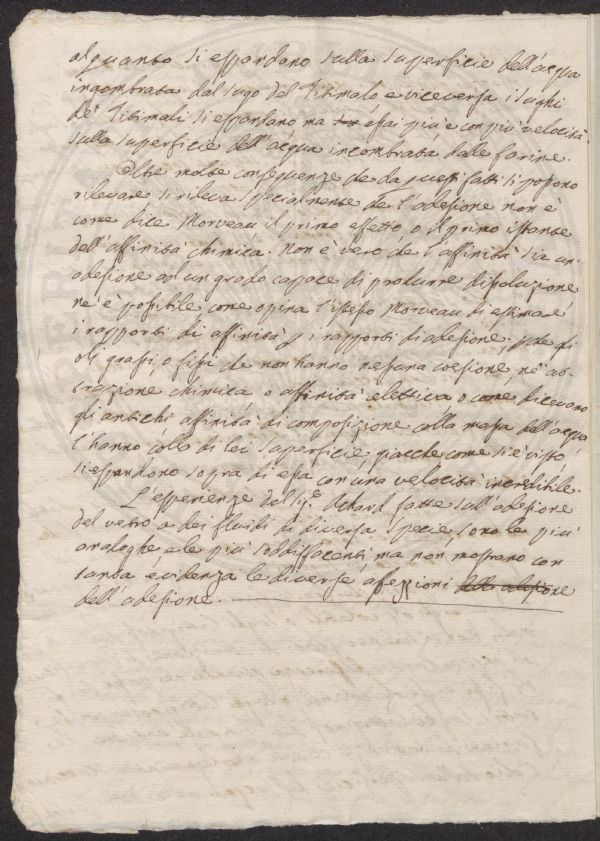 alquanto si espandono sulla superficie dell'acqua
ingombrata dal sugo del Titimalo e viceversa i sughi
de' Titimali si espandono ma assai più e con più velocità
sulla superficie dell'acqua incombrata dalle farine.
Oltre molte conseguenze che da questi fatti si possono
rilevare si rileva specialmente che l'adesione non è
come dice Morveau il primo effetto, o il primo istante
dell'affinità chimica. Non è vero che l'affinità sia un'
adesione ad un grado capace di produrre dissoluzione,
né è possibile come opina l'istesso Morveau di estimare
i rapporti di affinità p i rapporti di adesione; pche gli
oli grassi, o fissi che non hanno nessuna coesione, né at-
trazione chimica, o affinità elettiva, o come dicevano
gli antichi affinità di composizione colla massa dell'acqua
l'hanno colla di lei superficie, giacche come si è visto,
si espandono sopra di essa con una velocità incredibile.
L'esperienze del Sigr. Achard fatte sull'adesione
del vetro a dei fluidi di diversa specie sono le più
analoghe, e le più soddisfacenti, ma non mostrano con
tanta evidenza le diverse affezzioni
dell'adesione.